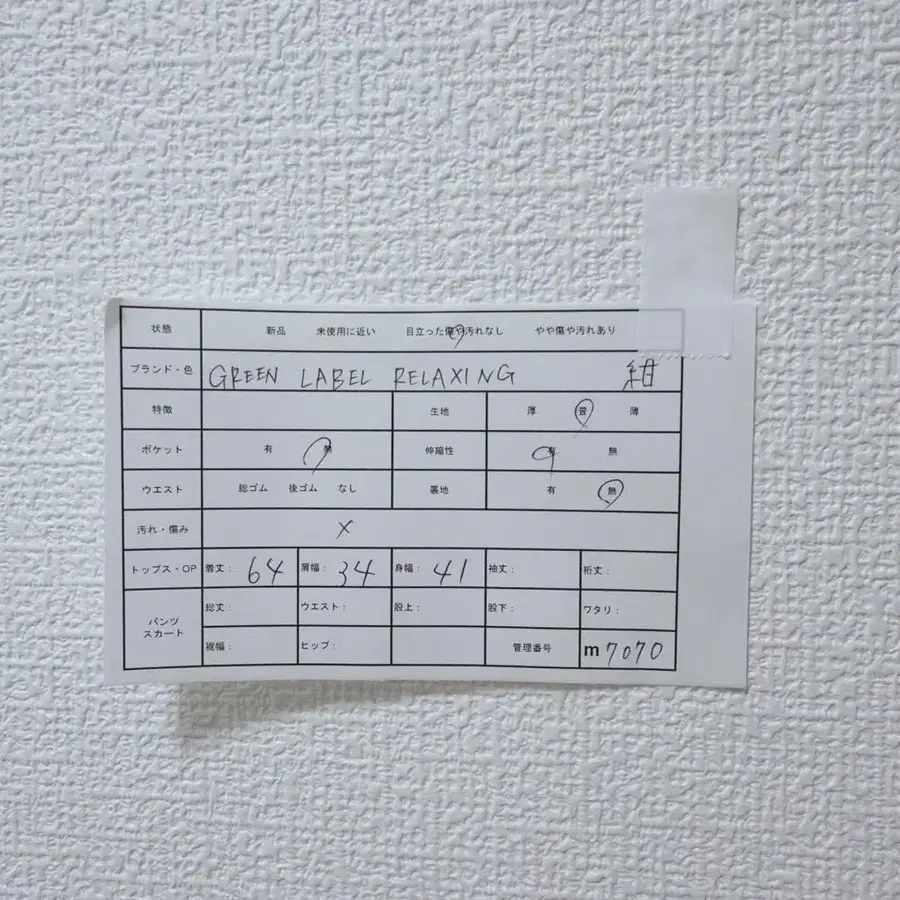 状態 新品 未使用に近い 目立った傷や汚れなし やや傷や汚れあり
ブランド・色 GREEN LABEL RELAXING 紺
特徴 生地 厚 普 薄
ポケット 有 無 伸縮性 有 無
ウエスト 総ゴム 後ゴム なし 裏地 有 無
汚れ・傷み ×
トップス・OP 着丈: 64 肩幅: 34 身幅: 41 袖丈: 裄丈:
パンツ スカート 総丈: ウエスト: 股上: 股下: ワタリ:
裾幅: ヒップ: 管理番号 m 7070